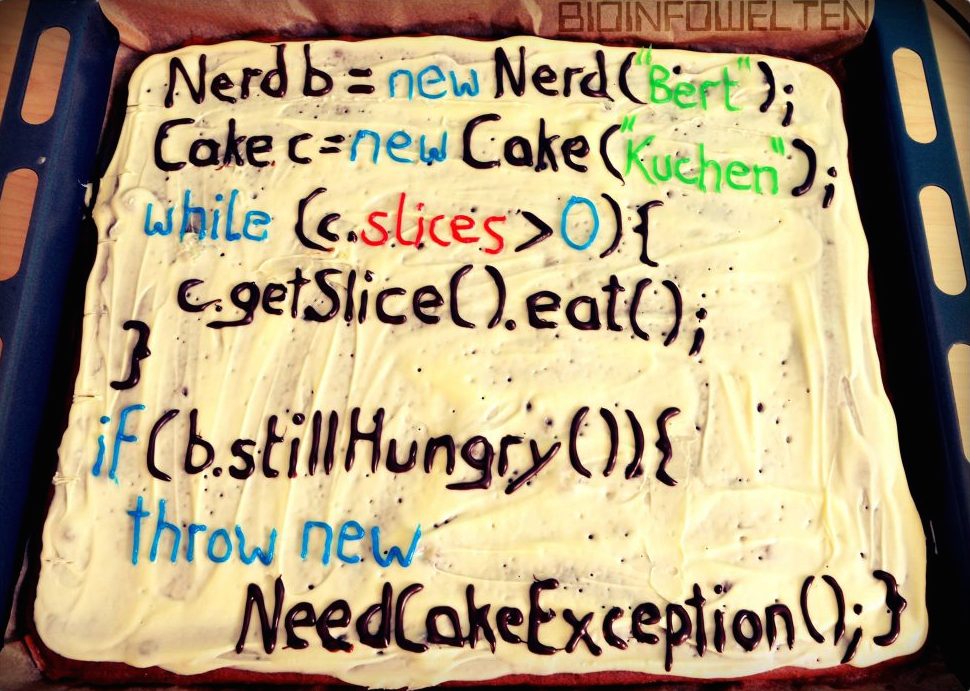 BIOINFOWELTEN
Nerd b = new Nerd("Bert");
Cake c=new Cake("Kuchen");
while (c.slices>0){
c.getSlice().eat();
}
if(b.stillHungry()){
throw new
NeedCakeException();}